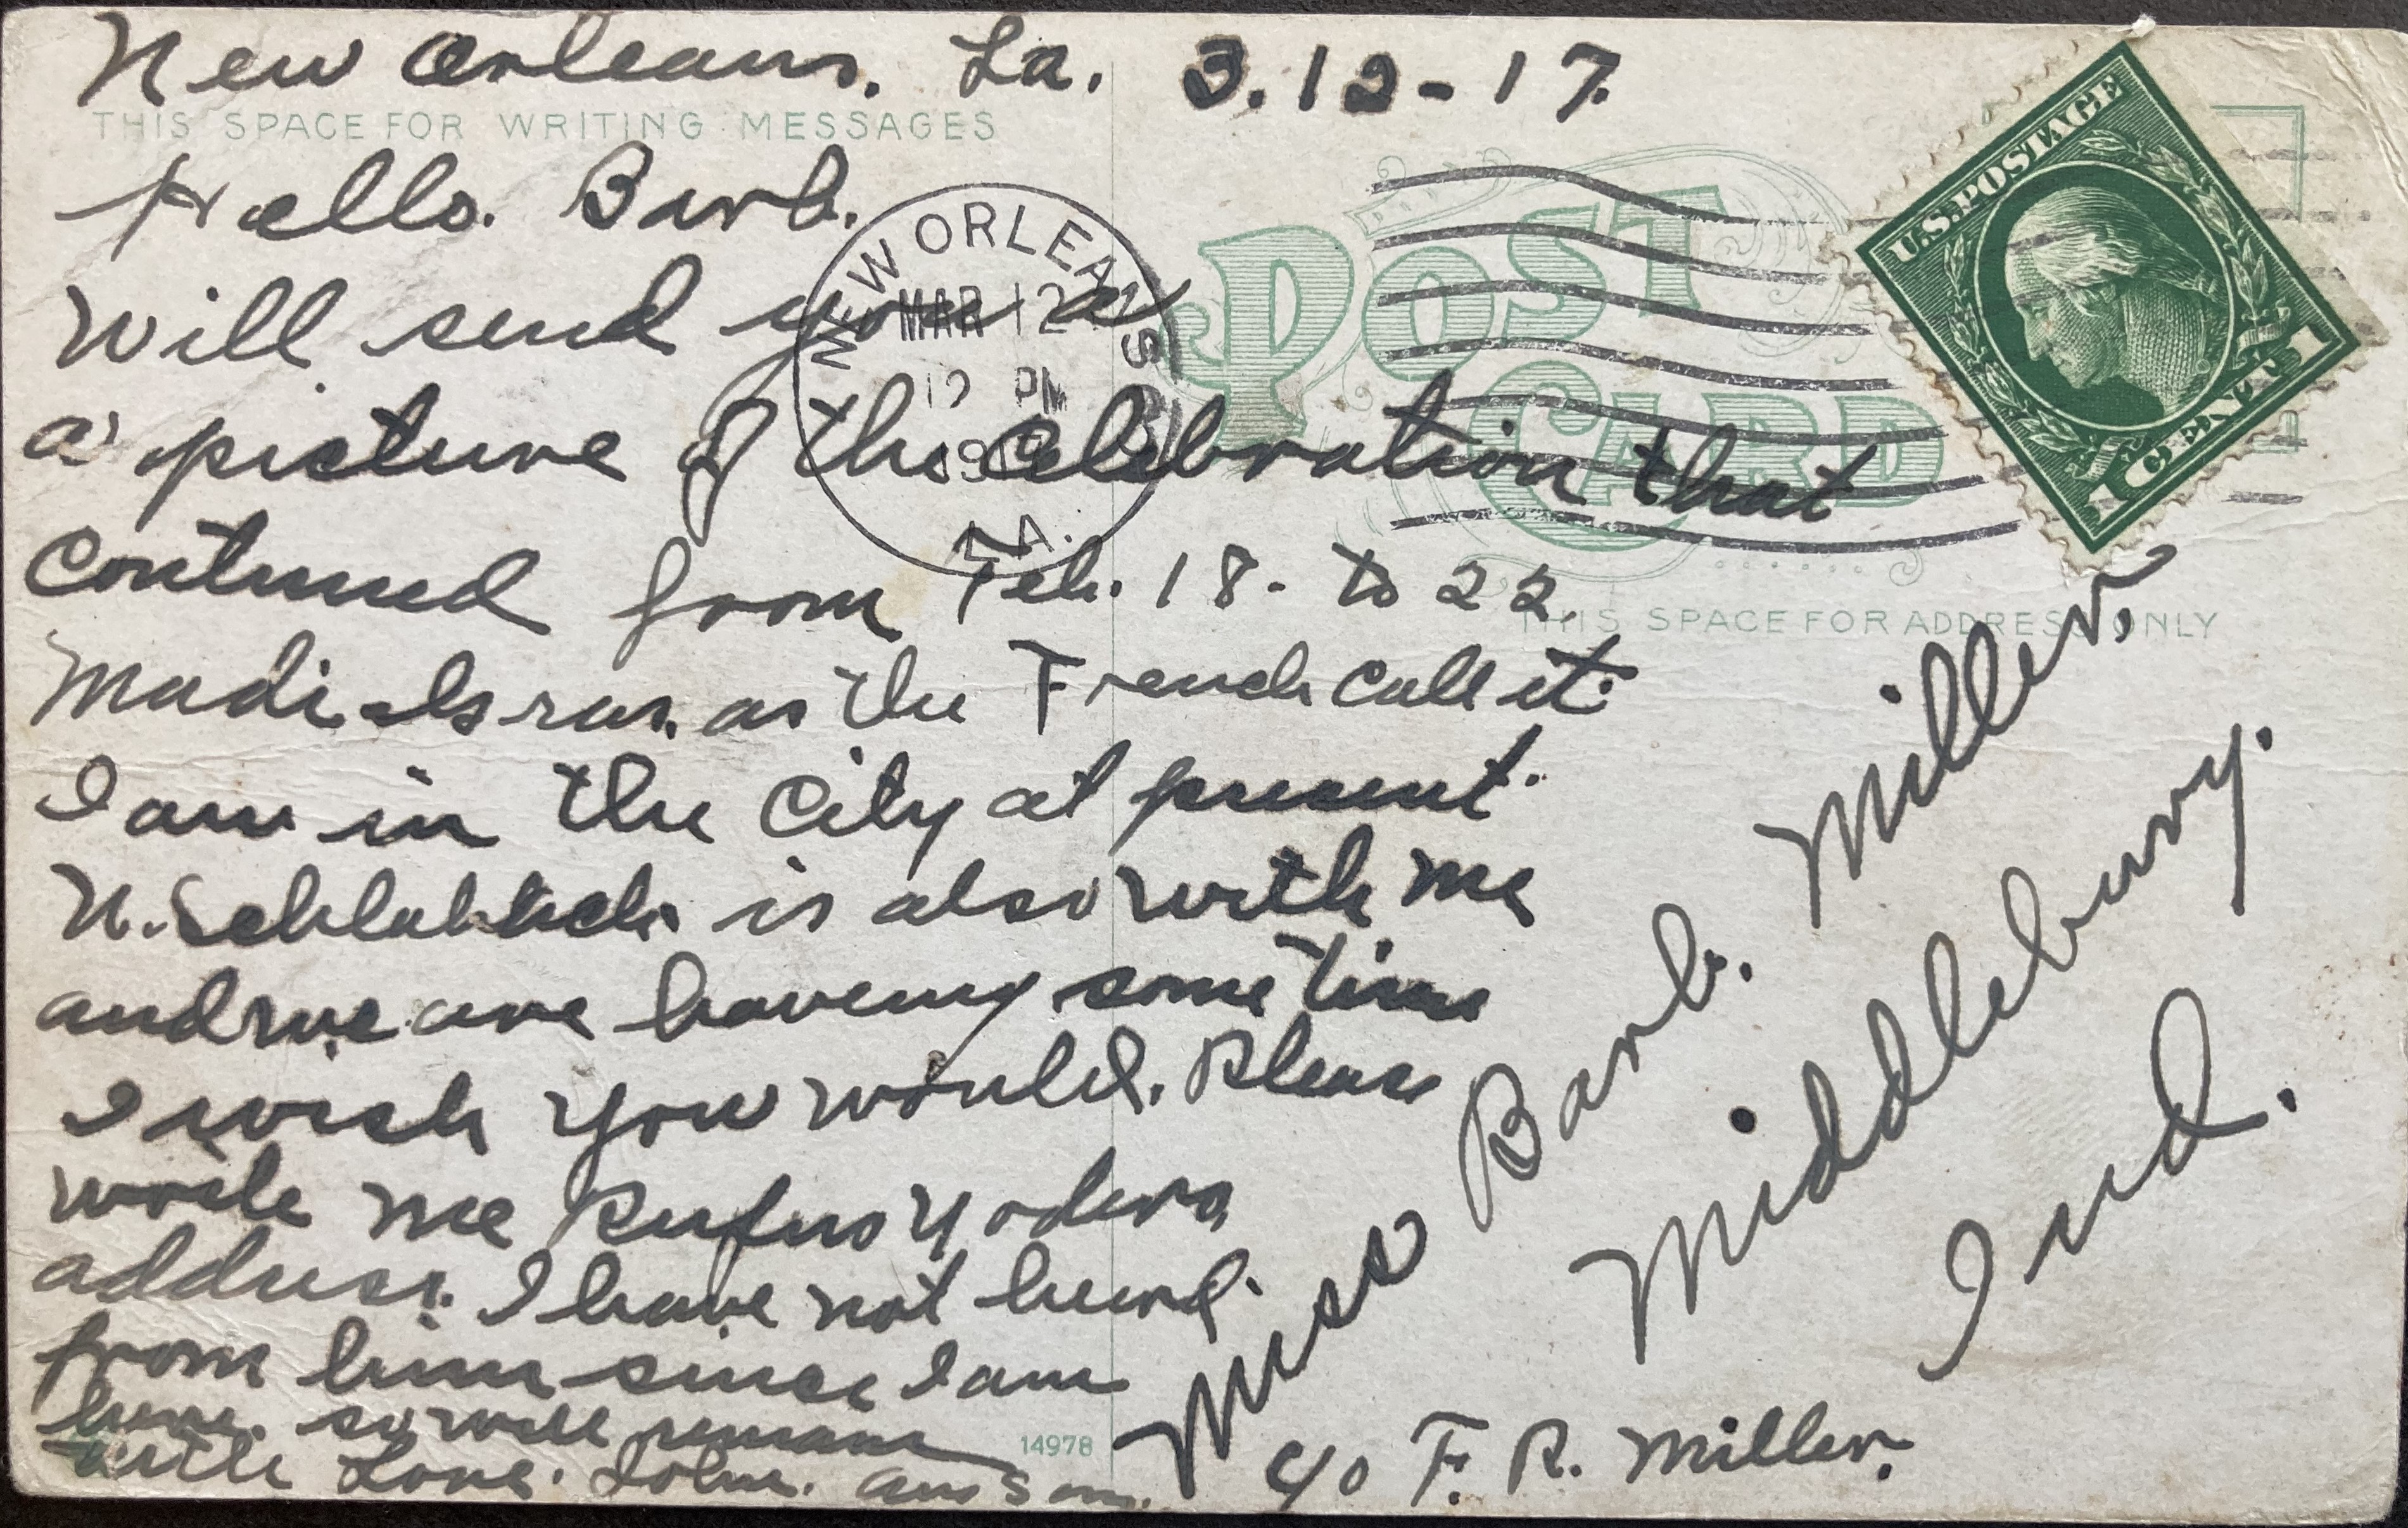 New Orleans. La. 3.12-17.
THIS SPACE FOR WRITING MESSAGES
Hello. Barb.
Will send you a
a picture of the Celebration that
Contunued from Feb. 18. to 22.
Madi Gras. as the French call it.
I am in the City at present.
N. Schlabach is also with me
and we are haveing some time
I wish you would. Please
write me Rufus Yoders
address. I have not heard.
from him since I am
here. so will remain
with Love. John.
14978
NEW ORLEANS
MAR 12
12 PM
LA.
POST
CARD
U.S. POSTAGE
1 CENT 1
THIS SPACE FOR ADDRESS ONLY
Miss Barb. Miller.
Middlebury.
Ind.
c/o F. R. Miller.